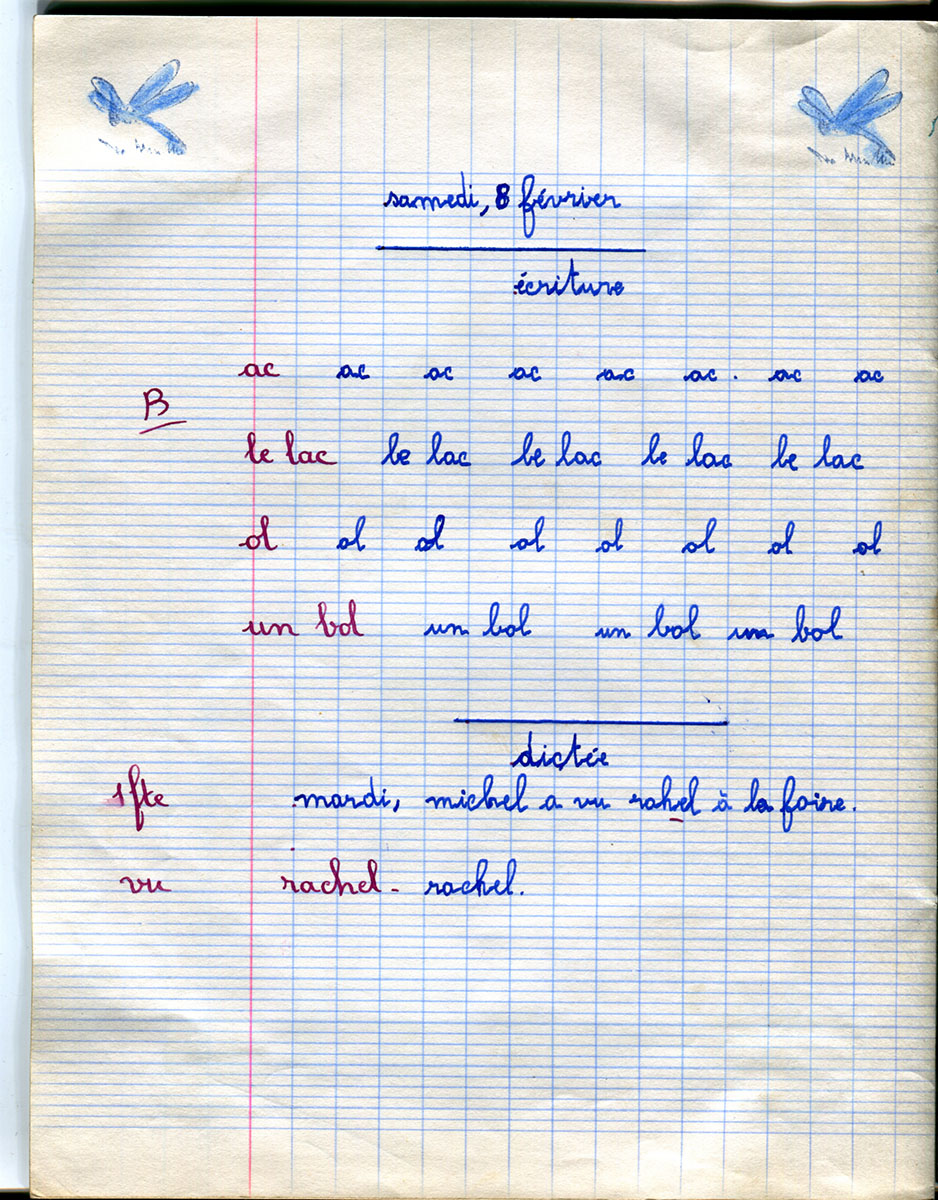 samedi, 8 février
écriture
ac ac ac ac ac ac. ac ac
B
le lac le lac le lac le lac le lac
ol ol ol ol ol ol ol ol
un bol un bol un bol un bol
dictée
1fte mardi, michel a vu rahel à la foire.
vu rachel - rachel.